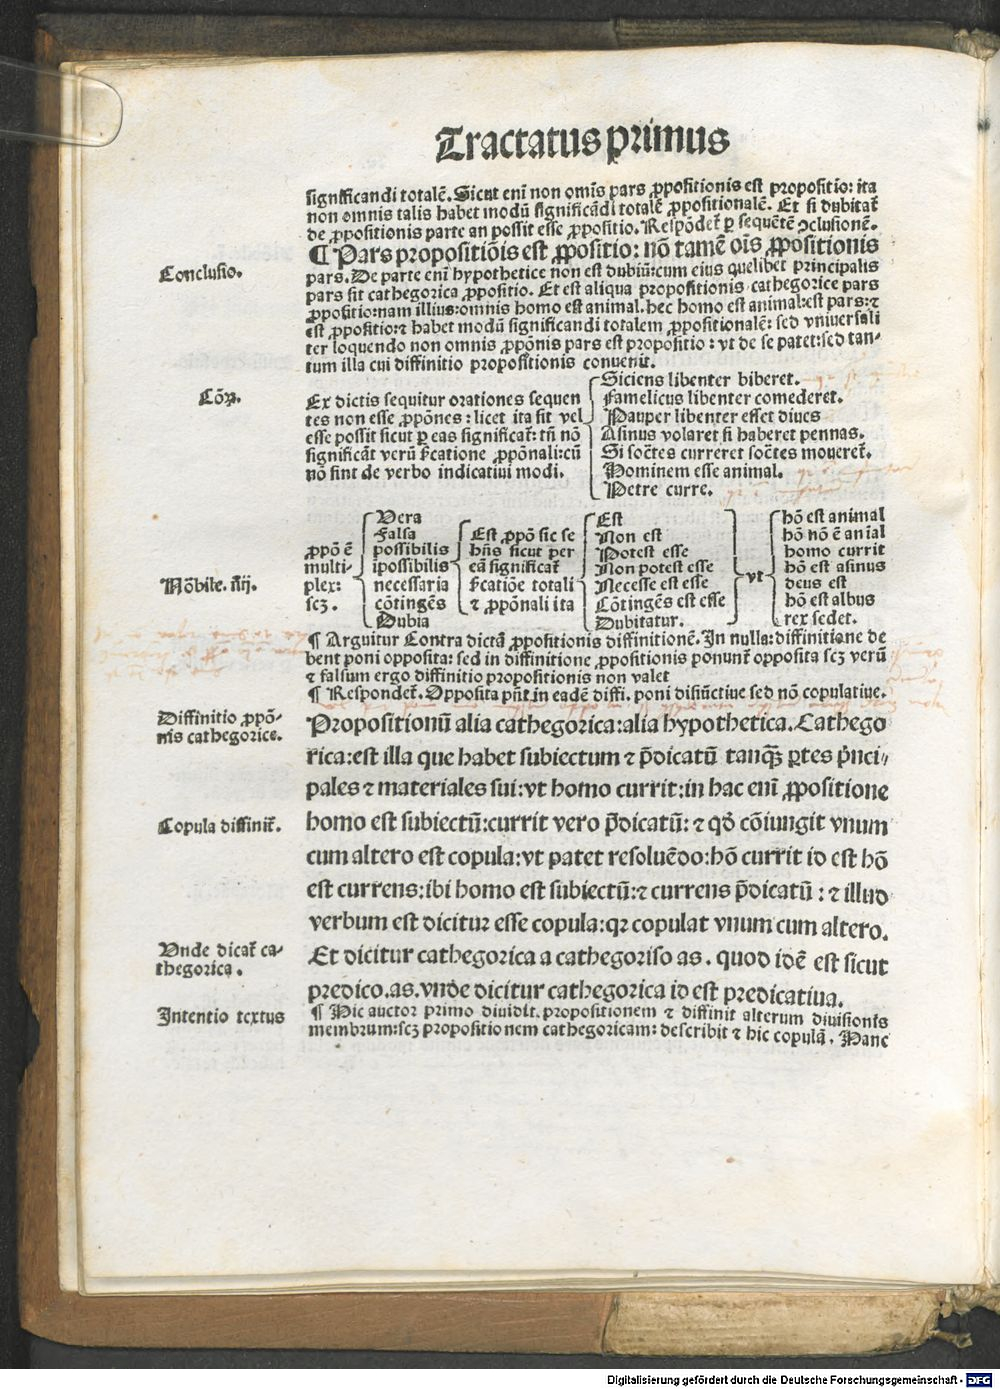 Tractatus primus
significandi totalē. Sicut eni̅ non omis̄ pars ꝓpositionis est propositio: ita
non omnis talis habet modū significādi totalē ꝓpositionalē. Et si dubitat᷑
de ꝓpositionis parte an possit esse ꝓpositio. Respōdet᷑ ꝑ sequētē ꝯclusionē.
Conclusio.
¶ Pars propositiōis est ꝓpositio: nō tamē oīs ꝓpositionis
pars. De parte eni̅ hypothetice non est dubiū: cum eius quelibet principalis
pars sit cathegorica ꝓpositio. Et est aliqua propositionis cathegorice pars
ꝓpositio: nam illius: omnis homo est animal. hec homo est animal: est pars: ⁊
est ꝓpositio: ⁊ habet modū significandi totalem ꝓpositionalē: sed vniuersali
ter loquendo non omnis ꝓpōnis pars est propositio: vt de se patet: sed tan-
tum illa cui diffinitio propositionis conuenit.
Cōꝝ.
Ex dictis sequitur orationes sequen
tes non esse ꝓpōnes: licet ita sit vel
esse possit sicut ꝑ eas significat᷑: tn̄ nō
significāt verū
ꝓpōnali: cū
nō sint de verbo indicatiui modi.
Siciens libenter biberet.
Famelicus libenter comederet.
Pauper libenter esset diues
Asinus volaret si haberet pennas.
Si soc̄tes curreret soc̄tes moueret᷑.
Hominem esse animal.
Petre curre.
Nōbile. iiij.
ꝓpō ē
multi-
plex:
scꝫ.
Vera
Falsa
possibilis
ipossibilis
necessaria
cōtingēs
Dubia
Est ꝓpō sic se
hn̄s sicut per
eā significat᷑
totali
⁊ ꝓpōnali ita
Est
Non est
Potest esse
Non potest esse
Necesse est esse
Cōtingēs est esse
Dubitatur.
vt
hō est animal
hō nō ē anīal
homo currit
hō est asinus
deus est
hō est albus
rex sedet.
¶ Arguitur Contra dictā ꝓpositionis diffinitionē. In nulla: diffinitione de
bent poni opposita: sed in diffinitione ꝓpositionis ponunt᷑ opposita scꝫ verū
⁊ falsum ergo diffinitio propositionis non valet
¶ Respondet᷑. Opposita pn̄t in eadē diffi. poni disiūctiue sed nō copulatiue.
Diffinitio ꝓpō-
nis cathegorice.
Propositionū alia cathegorica: alia hypothetica. Cathego
rica: est illa que habet subiectum ⁊ p̄dicatū tanqꝫ ꝑtes p̄nci-
pales ⁊ materiales sui: vt homo currit: in hac eni̅ ꝓpositione
Copula diffinit᷑.
homo est subiectū: currit vero p̄dicatū: ⁊ qd̄ cōiungit vnum
cum altero est copula: vt patet resoluēdo: hō currit id est hō
est currens: ibi homo est subiectū: ⁊ currens p̄dicatū: ⁊ illud
verbum est dicitur esse copula: qꝛ copulat vnum cum altero.
Vnde dicat᷑ ca-
thegorica.
Et dicitur cathegorica a cathegoriso as. quod idē est sicut
predico. as. vnde dicitur cathegorica id est predicatiua.
Intentio textus
¶ Hic auctor primo diuidit. propositionem ⁊ diffinit alterum diuisionis
membrum: scꝫ propositionem cathegoricam: describit ⁊ hic copulā. Hanc
Digitalisierung gefördert durch die Deutsche Forschungsgemeinschaft - DFG